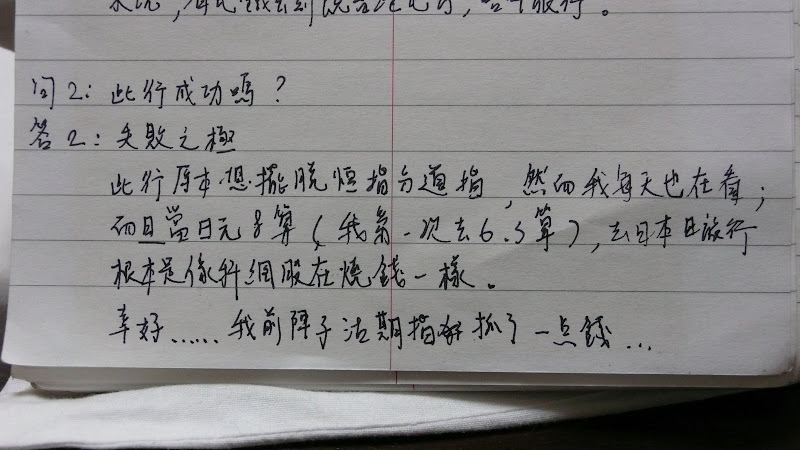 问2：此行成功嗎？
答2：失敗之極
此行原本想擺脫恒指与道指，然而我每天也在看；
而且當日元8算（我第一次去6.5算），去日本旅行
根本是像科網股在燒錢一樣。
幸好……我前陣子沽期指 抓了一点錢…